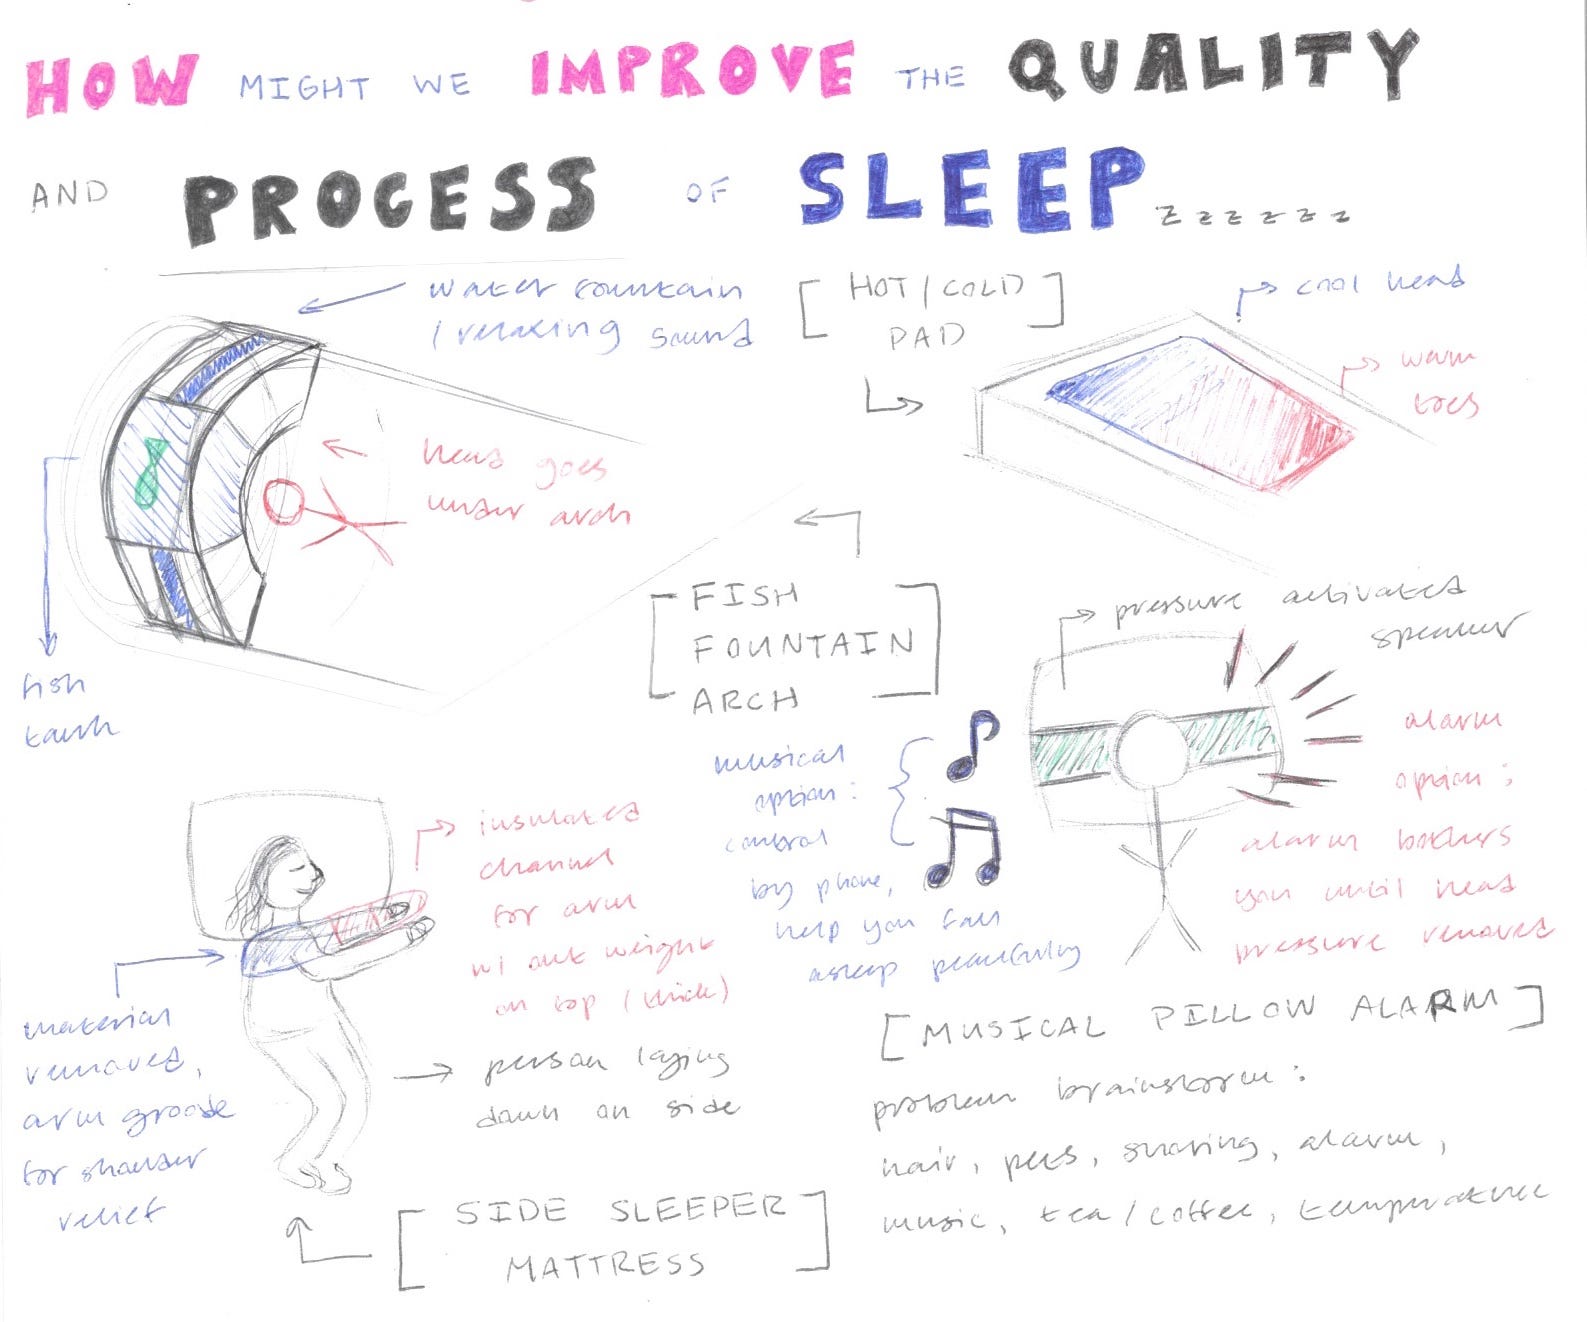 HOW MIGHT WE IMPROVE THE QUALITY
AND PROCESS OF SLEEP zzzzzz
water fountain
/ relaxing sound
head goes
under arch
fish
tank
[FISH
FOUNTAIN
ARCH]
[HOT/COLD
PAD]
cool head
warm
toes
pressure activated
speaker
alarm
option:
alarm bothers
you until head
pressure removed
musical
option:
control
by phone,
help you fall
asleep peacefully
[MUSICAL PILLOW ALARM]
problem brainstorm:
hair, pets, snoring, alarm,
music, tea/coffee, temperature
insulated
channel
for arm
w/ out weight
on top (thick)
material
removed,
arm groove
for shoulder
relief
person laying
down on side
[SIDE SLEEPER
MATTRESS]